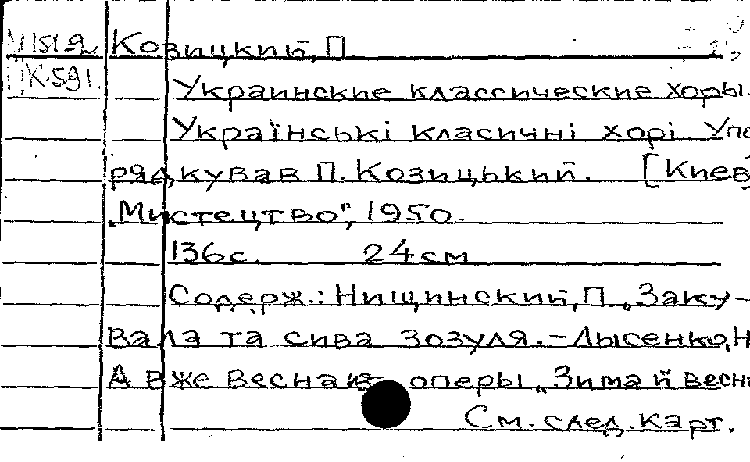 М151.2 Козицкий, П.
К-591
Украинские классические хоры.
Українські класичні хорі. Упо
рядкував П. Козицький. [Киев]
„Мистецтво", 1950.
136 с. 24 см
Содерж.: Нищинский, П. „Заку-
вала та сива зозуля.- Лысенко, Н
А вже весна из оперы „Зима й весн
См. след. карт.